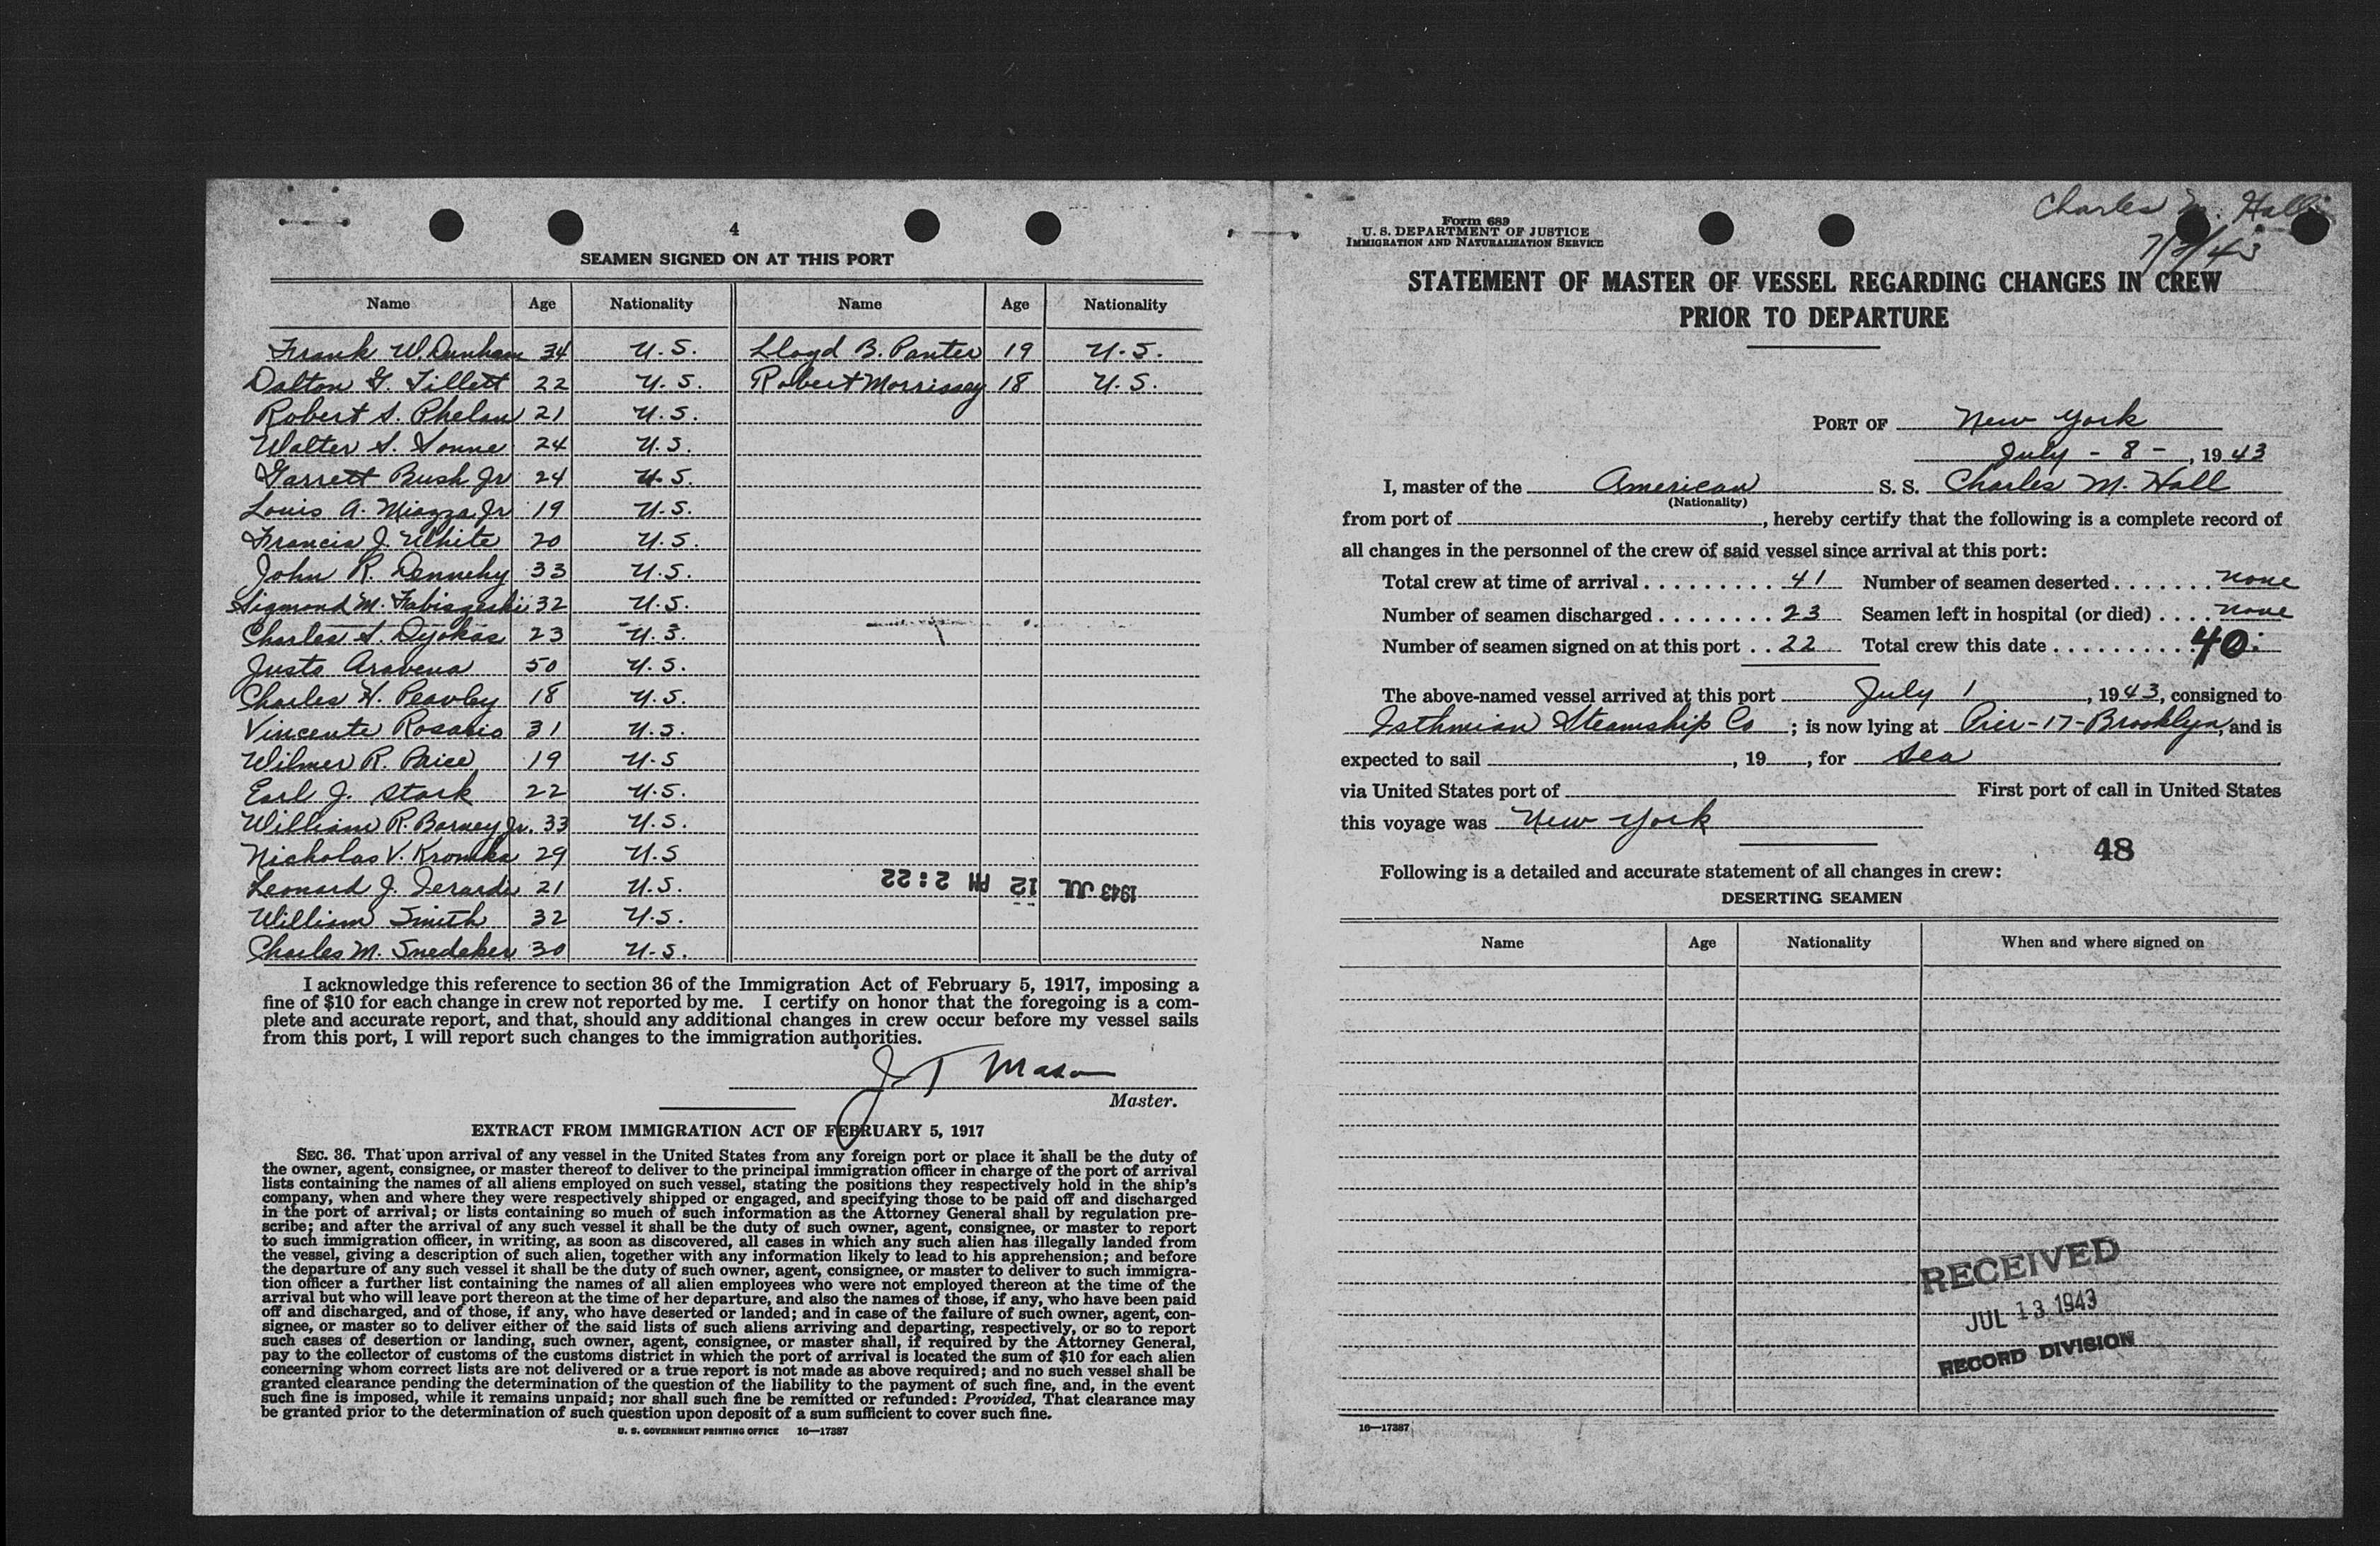 4
SEAMEN SIGNED ON AT THIS PORT
Name Age Nationality Name Age Nationality
Frank W. Dunham 34 U.S. Lloyd B. Panter 19 U.S.
Dalton G. Tillett 22 U.S. Robert Morrissey 18 U.S.
Robert S. Phelan 21 U.S.
Walter S. Sonne 24 U.S.
Garrett Bush Jr 24 U.S.
Louis A. Miazza Jr 19 U.S.
Francis J. White 20 U.S.
John R. Dennehy 33 U.S.
Sigmond M. 32 U.S.
Charles S. Dyokas 23 U.S.
Justo Aravena 50 U.S.
Charles H. Peavley 18 U.S.
Vincente Rosario 31 U.S.
Wilmer R. Price 19 U.S
Earl J. Stark 22 U.S.
William R. Barney Jr. 33 U.S.
Nicholas V. Kromka 29 U.S
Leonard J. 21 U.S.
1943 JUL 12 PM 2:22
William Smith 32 U.S.
Charles M. Snedeker 30 U.S.
I acknowledge this reference to section 36 of the Immigration Act of February 5, 1917, imposing a
fine of $10 for each change in crew not reported by me. I certify on honor that the foregoing is a com-
plete and accurate report, and that, should any additional changes in crew occur before my vessel sails
from this port, I will report such changes to the immigration authorities.
J T Mason
Master.
EXTRACT FROM IMMIGRATION ACT OF FEBRUARY 5, 1917
SEC. 36. That upon arrival of any vessel in the United States from any foreign port or place it shall be the duty of
the owner, agent, consignee, or master thereof to deliver to the principal immigration officer in charge of the port of arrival
lists containing the names of all aliens employed on such vessel, stating the positions they respectively hold in the ship's
company, when and where they were respectively shipped or engaged, and specifying those to be paid off and discharged
in the port of arrival; or lists containing so much of such information as the Attorney General shall by regulation pre-
scribe; and after the arrival of any such vessel it shall be the duty of such owner, agent, consignee, or master to report
to such immigration officer, in writing, as soon as discovered, all cases in which any such alien has illegally landed from
the vessel, giving a description of such alien, together with any information likely to lead to his apprehension; and before
the departure of any such vessel it shall be the duty of such owner, agent, consignee, or master to deliver to such immigra-
tion officer a further list containing the names of all alien employees who were not employed thereon at the time of the
arrival but who will leave port thereon at the time of her departure, and also the names of those, if any, who have been paid
off and discharged, and of those, if any, who have deserted or landed; and in case of the failure of such owner, agent, con-
signee, or master so to deliver either of the said lists of such aliens arriving and departing, respectively, or so to report
such cases of desertion or landing, such owner, agent, consignee, or master shall, if required by the Attorney General,
pay to the collector of customs of the customs district in which the port of arrival is located the sum of $10 for each alien
concerning whom correct lists are not delivered or a true report is not made as above required; and no such vessel shall be
granted clearance pending the determination of the question of the liability to the payment of such fine, and, in the event
such fine is imposed, while it remains unpaid; nor shall such fine be remitted or refunded: Provided, That clearance may
be granted prior to the determination of such question upon deposit of a sum sufficient to cover such fine.
U. S. GOVERNMENT PRINTING OFFICE 16—17387
Charles M. Hall
7/8/43
Form 689
U. S. DEPARTMENT OF JUSTICE
IMMIGRATION AND NATURALIZATION SERVICE
STATEMENT OF MASTER OF VESSEL REGARDING CHANGES IN CREW
PRIOR TO DEPARTURE
PORT OF New York
July - 8 -, 1943
I, master of the American S. S. Charles M. Hall
(Nationality)
from port of , hereby certify that the following is a complete record of
all changes in the personnel of the crew of said vessel since arrival at this port:
Total crew at time of arrival . . . . . . . . . . 41 Number of seamen deserted . . . . . . . none
Number of seamen discharged . . . . . . . . 23 Seamen left in hospital (or died) . . . . none
Number of seamen signed on at this port . . 22 Total crew this date . . . . . . . . . . 40
The above-named vessel arrived at this port July 1, 1943, consigned to
Isthmian Steamship Co ; is now lying at Pier-17-Brooklyn, and is
expected to sail , 19 , for Sea
via United States port of First port of call in United States
this voyage was New York
48
Following is a detailed and accurate statement of all changes in crew:
DESERTING SEAMEN
Name Age Nationality When and where signed on
RECEIVED
JUL 13 1943
RECORD DIVISION
16—17387